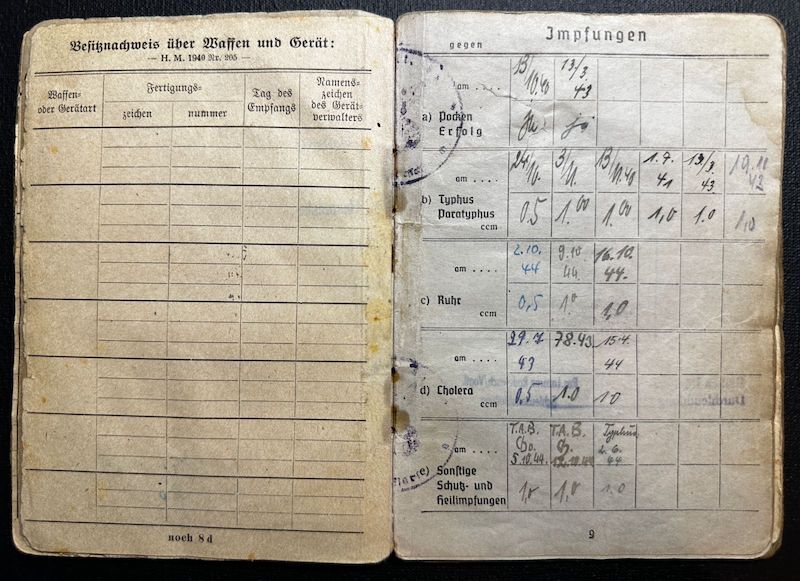 Besitznachweis über Waffen und Gerät:
— H. M. 1940 Nr. 205 —
Waffen-
oder Gerätart
Fertigungs-
zeichen
nummer
Tag des
Empfangs
Namens-
zeichen
des Gerät-
verwalters
noch 8 d
Impfungen
gegen
13/10.40 13/3.43
am . . . .
a) Pocken
Erfolg
ja ja
24/10. 3/11. 13/11.40 1.7.41 13/3.43 19.11 42
am . . . .
b) Typhus
Paratyphus
ccm
0.5 1.00 1.00 1,0 1.0 1,0
2.10.44 9.10 44 16.10.44.
am . . . .
c) Ruhr
ccm
0,5 1.0 1,0
29.7 43 7 8.43 15.4. 44
am . . . .
d) Cholera
ccm
0.5 1.0 1.0
T.A.B. T.A.B. Typhus
5.10.44 12.10.44 2.6.44
am . . . .
e) Sonstige
Schutz- und
Heilimpfungen
1,0 1,0 1.0
9